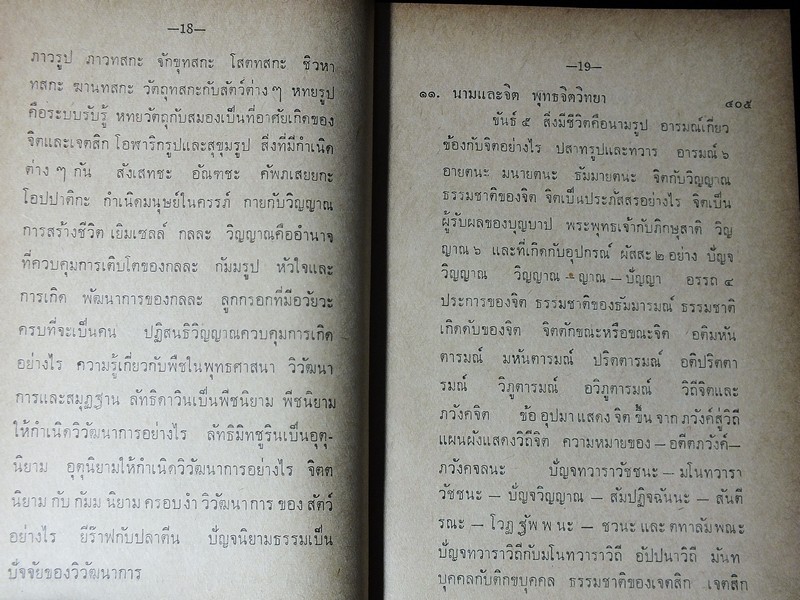 —18—
ภาวรูป ภาวทสกะ จักขุทสกะ โสตทสกะ ชิวหา
ทสกะ ฆานทสกะ วัตถุทสกะกับสัตว์ต่าง ๆ หทยรูป
คือระบบรับรู้ หทยวัตถุกับสมองเป็นที่อาศัยเกิดของ
จิตและเจตสิก โอฬาริกรูปและสุขุมรูป สิ่งที่มีกำเนิด
ต่าง ๆ กัน สังเสทชะ อัณฑชะ คัพภเสยยกะ
โอปปาติกะ กำเนิดมนุษย์ในครรภ์ กายกับวิญญาณ
การสร้างชีวิต เยิมเซลล์ กลละ วิญญาณคืออำนาจ
ที่ควบคุมการเติบโตของกลละ กัมมรูป หัวใจและ
การเกิด พัฒนาการของกลละ ลูกกรอกที่มีอวัยวะ
ครบที่จะเป็นคน ปฏิสนธิวิญญาณควบคุมการเกิด
อย่างไร ความรู้เกี่ยวกับพืชในพุทธศาสนา วิวัฒนา
การและสมุฏฐาน ลัทธิดาวินเป็นพีชนิยาม พีชนิยาม
ให้กำเนิดวิวัฒนาการอย่างไร ลัทธิมิทชูรินเป็นอุตุ-
นิยาม อุตุนิยามให้กำเนิดวิวัฒนาการอย่างไร จิตต
นิยาม กับ กัมม นิยาม ครอบงำ วิวัฒนา การ ของ สัตว์
อย่างไร ยีร๊าฟกับปลาตีน ปัญจนิยามธรรมเป็น
ปัจจัยของวิวัฒนาการ
—19—
๑๑. นามและจิต พุทธจิตวิทยา ๔๐๕
ขันธ์ ๕ สิ่งมีชีวิตคือนามรูป อารมณ์เกี่ยว
ข้องกับจิตอย่างไร ปสาทรูปและทวาร อารมณ์ ๖
อายตนะ มนายตนะ ธัมมายตนะ จิตกับวิญญาณ
ธรรมชาติของจิต จิตเป็นประภัสสรอย่างไร จิตเป็น
ผู้รับผลของบุญบาป พระพุทธเจ้ากับภิกษุสาติ วิญ
ญาณ ๖ และที่เกิดกับอุปกรณ์ ผัสสะ ๒ อย่าง ปัญจ
วิญญาณ วิญญาณ – ญาณ – ปัญญา อรรถ ๔
ประการของจิต ธรรมชาติของธัมมารมณ์ ธรรมชาติ
เกิดดับของจิต จิตตักขณะหรือขณะจิต อติมหัน
ตารมณ์ มหันตารมณ์ ปริตตารมณ์ อติปริตตา
รมณ์ วิภูตารมณ์ อวิภูตารมณ์ วิถีจิตและ
ภวังคจิต ข้อ อุปมา แสดง จิต ขึ้น จาก ภวังค์สู่วิถี
แผนผังแสดงวิถีจิต ความหมายของ — อตีตภวังค์—
ภวังคจลนะ ปัญจทวาราวัชชนะ — มโนทวารา
วัชชนะ — ปัญจวิญญาณ — สัมปฏิจฉันนะ — สันตี
รณะ — โวฏ ฐัพ พ นะ — ชวนะ และ ตทาลัมพณะ
ปัญจทวาราวิถีกับมโนทวาราวิถี อัปปนาวิถี มันท
บุคคลกับติกขบุคคล ธรรมชาติของเจตสิก เจตสิก